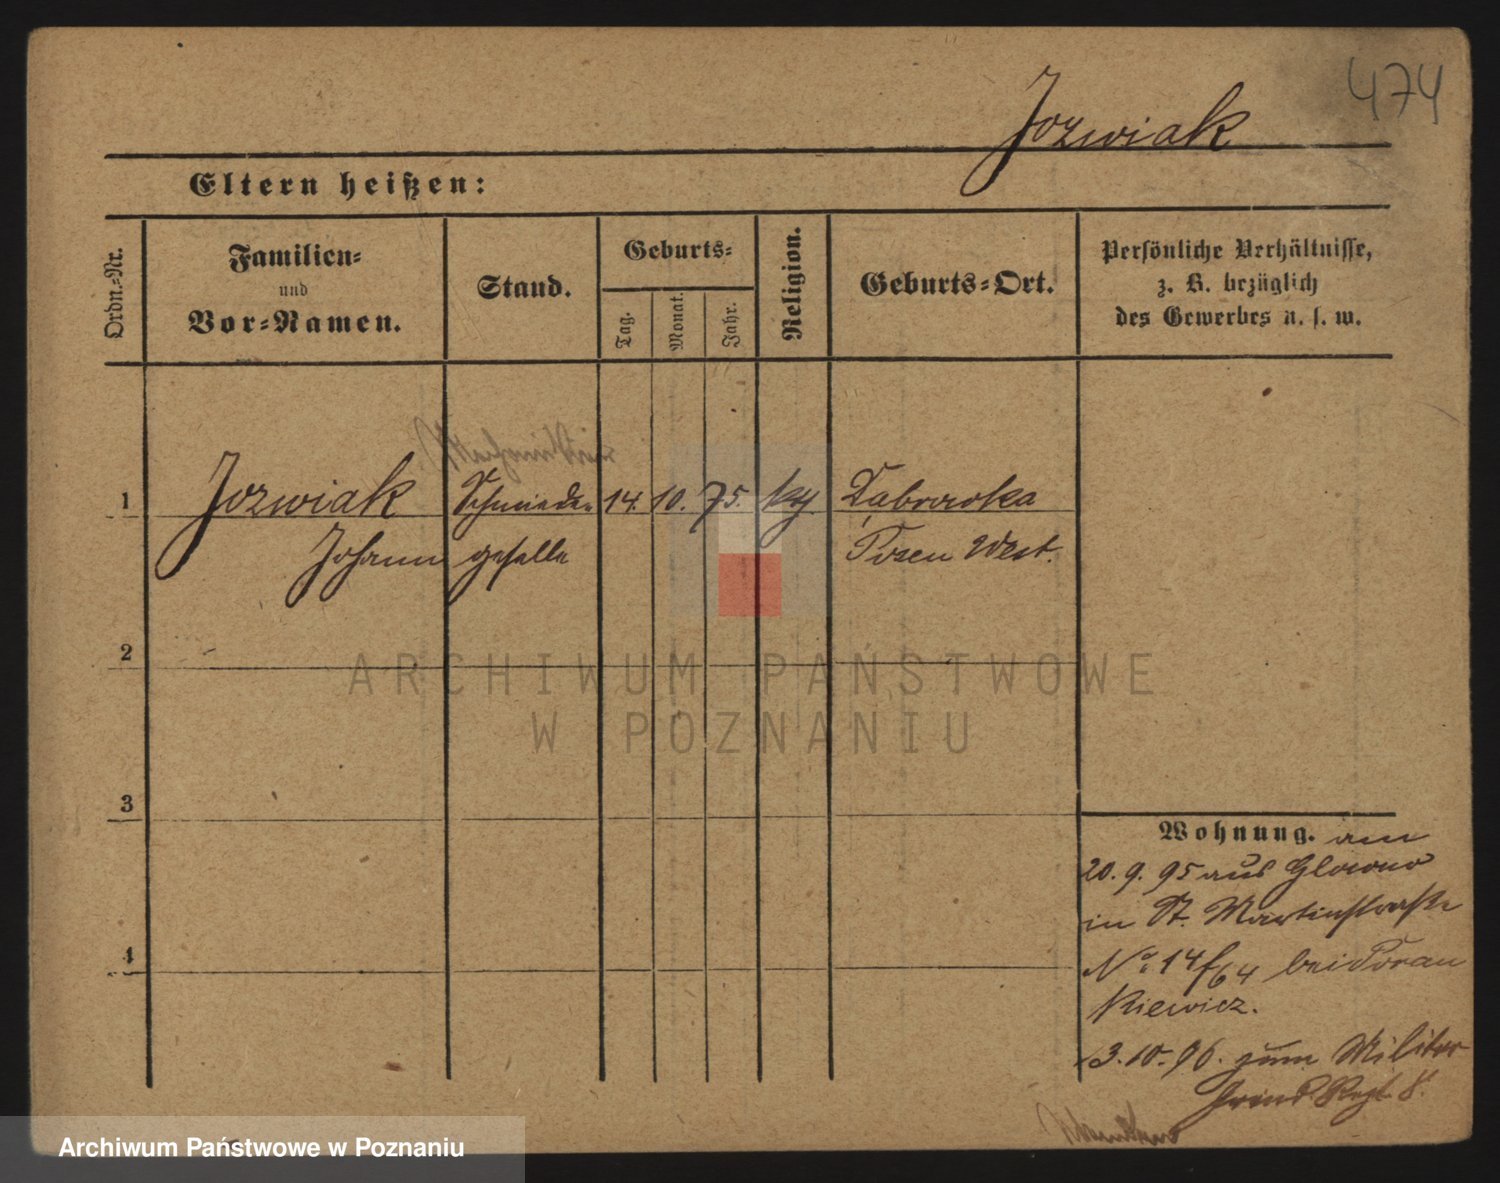 474
Jozwiak
Eltern heißen:
Ordn.-Nr.
Familien-
und
Vor-Namen.
Stand.
Geburts-
Tag.
Monat.
Jahr.
Religion.
Geburts-Ort.
Persönliche Verhältnisse,
z. B. bezüglich
des Gewerbes u. s. w.
1
Jozwiak Schmiede- 14. 10. 75. Dąbrowka
Johann geselle Posen West.
2
ARCHIWUM PAŃSTWOWE
W POZNANIU
3
Wohnung. am
20. 9. 95 aus Glowno
in St. Martinstraße
No 14/64 bei
kiewicz.
3. 10. 96. zum Militär
Regt. 8.
4
Archiwum Państwowe w Poznaniu